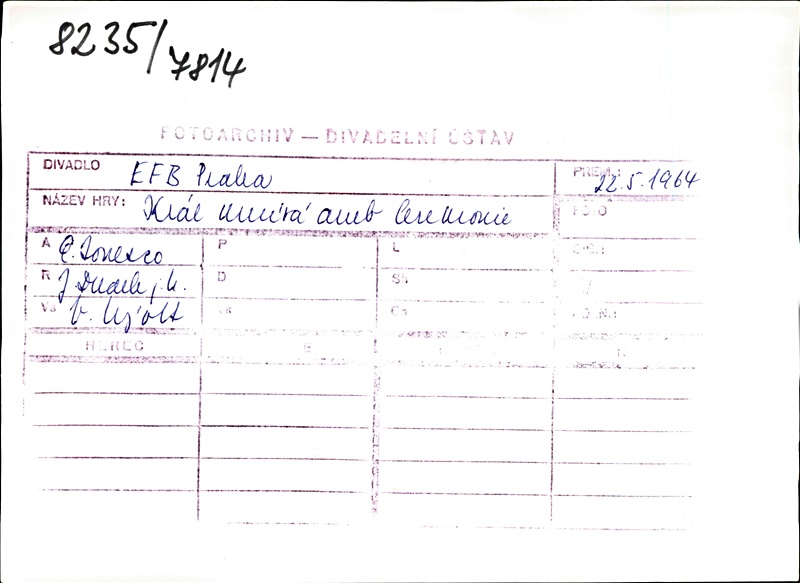 8235/7814
FOTOARCHIV — DIVADELNÍ ÚSTAV
DIVADLO EFB Praha PREM.: 22.5.1964
NÁZEV HRY: Král umírá aneb Ceremonie
A E. Ionesco P L
R J. Dudek j.h. D Sh
V. Nývlt
HEREC